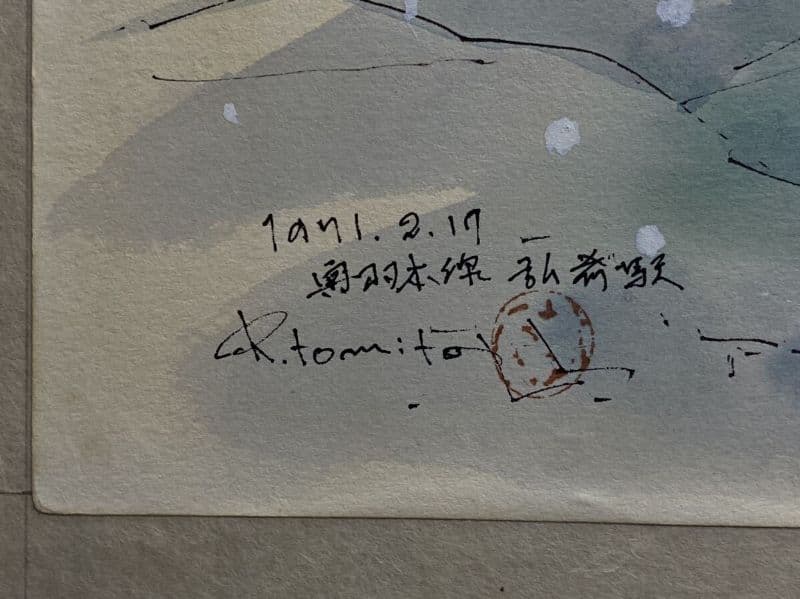 1971.2.17
奥羽本線 弘前駅
R.tomita